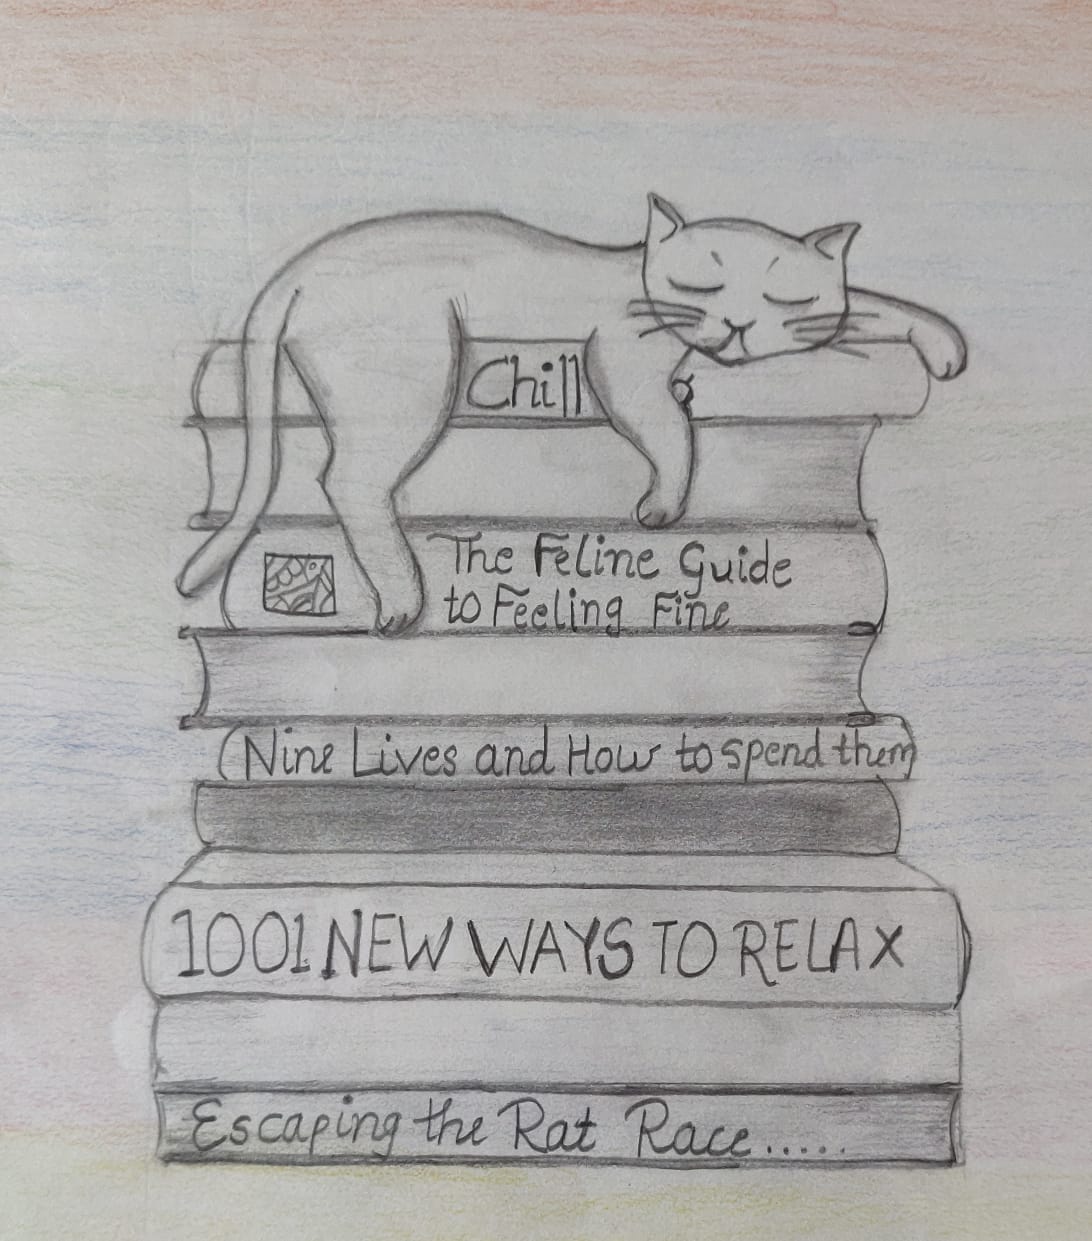 Chill
The Feline Guide
to Feeling Fine
Nine Lives and How to spend them
1001 NEW WAYS TO RELAX
Escaping the Rat Race.....